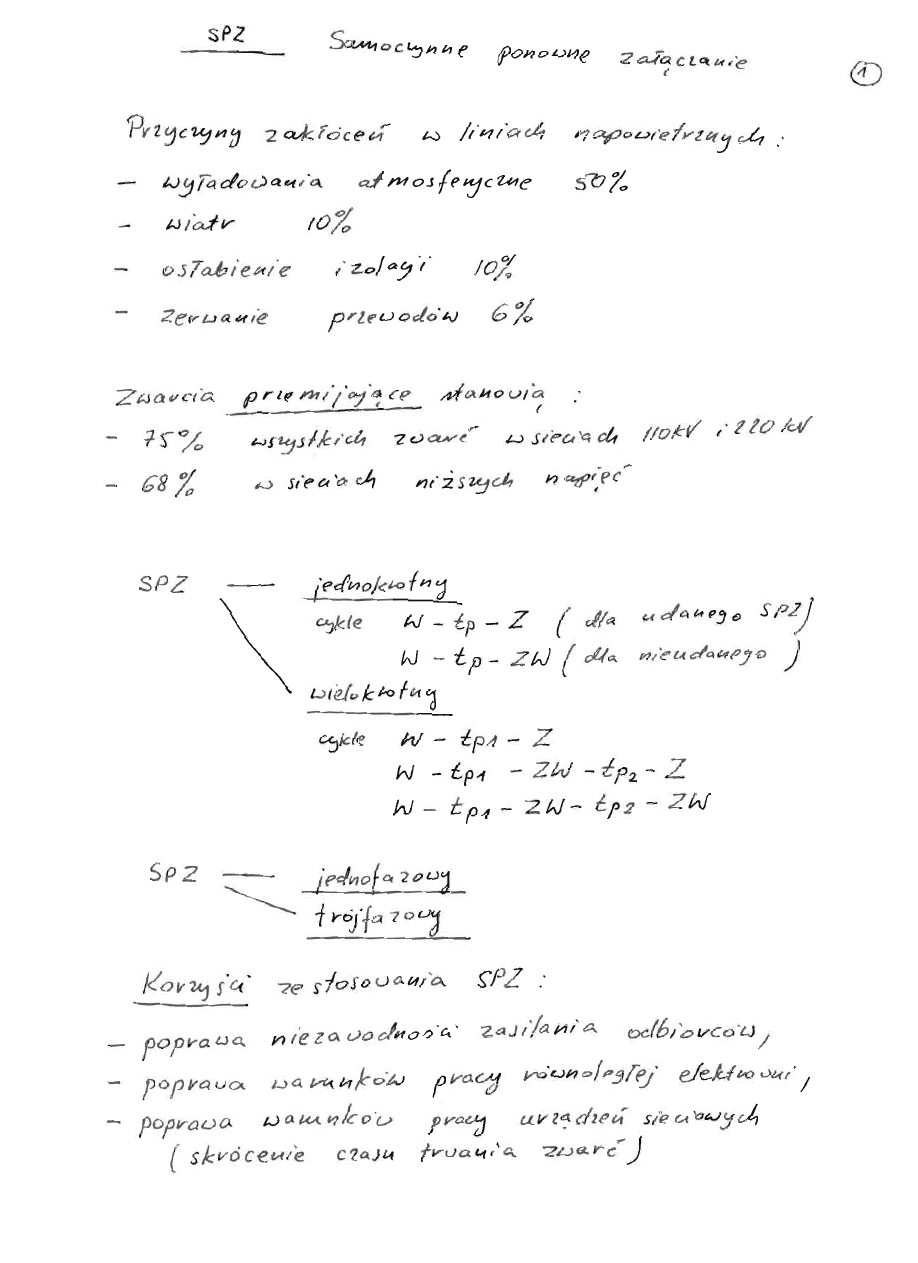 SPZ Samoczynne ponowne załączanie
1
Przyczyny zakłóceń w liniach napowietrznych :
– wyładowania atmosferyczne 50%
– wiatr 10%
– osłabienie izolacji 10%
– zerwanie przewodów 6%
Zwarcia przemijające stanowią :
– 75% wszystkich zwarć w sieciach 110kV i 220 kV
– 68% w sieciach niższych napięć
SPZ — jednokrotny
cykle W – tp – Z ( dla udanego SPZ)
W – tp – ZW ( dla nieudanego )
wielokrotny
cykle W – tp1 – Z
W – tp1 – ZW – tp2 – Z
W – tp1 – ZW – tp2 – ZW
SPZ — jednofazowy
trójfazowy
Korzyści ze stosowania SPZ :
– poprawa niezawodności zasilania odbiorców,
– poprawa warunków pracy równoległej elektrowni,
– poprawa warunków pracy urządzeń sieciowych
( skrócenie czasu trwania zwarć )